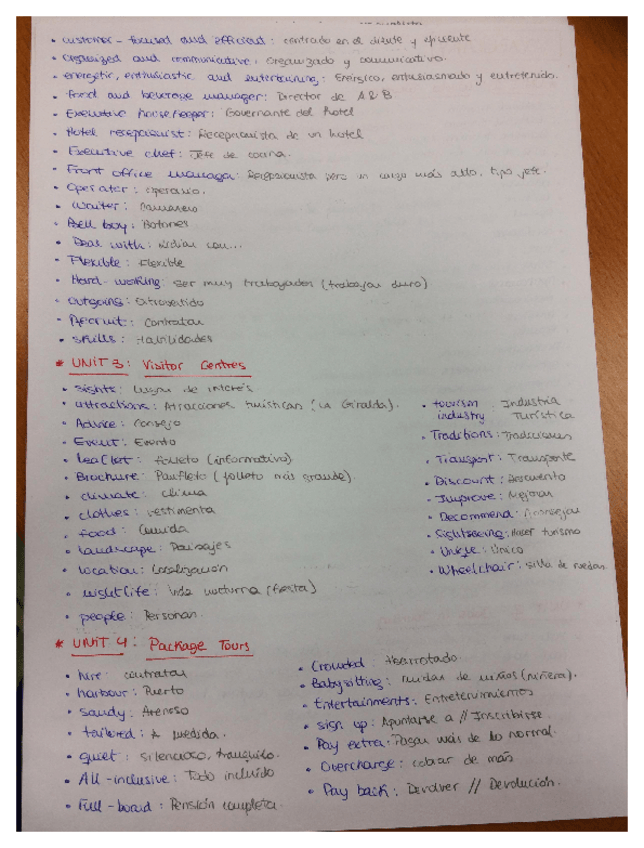 • customer - focused and efficient : centrado en el cliente y eficiente
• organized and communicative : organizado y comunicativo.
• energetic, enthusiastic and entertaining : Enérgico, entusiasmado y entretenido.
• Food and beverage manager : Director de A&B
• Executive housekeeper : Governante del hotel
• Hotel receptionist : Recepcionista de un hotel
• Executive chef : Jefe de cocina.
• Front office manager : Recepcionista pero un cargo más alto, tipo jefe.
• Operator : operario.
• Waiter : Camarero
• Bell boy : Botones
• Deal with : lidiar con...
• Flexible : Flexible
• Hard-working : ser muy trabajador (trabajar duro)
• outgoing : Extrovertido
• Recruit : Contratar
• skills : Habilidades
* UNIT 3 : Visitor Centres
• sights : lugar de interés
• attractions : Atracciones turísticas (La Giralda).
• Advice : Consejo
• Event : Evento
• Leaflet : folleto (informativo)
• Brochure : Panfleto (folleto más grande)
• climate : clima
• clothes : vestimenta
• food : Comida
• landscape : Paisajes
• location : Localización
• nightlife : Vida nocturna (fiesta)
• people : Personas.
• tourism industry : Industria Turística
• Traditions : Tradiciones
• Transport : Transporte
• Discount : Descuento
• Improve : Mejorar
• Recommend : Aconsejar
• Sightseeing : Hacer turismo
• Unique : Único
• Wheelchair : silla de ruedas
* UNIT 4 : Package Tours
• hire : contratar
• harbour : Puerto
• sandy : Arenoso
• tailored : A medida.
• quiet : silencioso, tranquilo.
• All-inclusive : Todo incluido
• Full-board : Pensión completa.
• Crowded : Abarrotado.
• Babysitting : cuidar de niños (niñera).
• Entertainments : Entretenimientos
• sign up : Apuntarse a // Inscribirse.
• Pay extra : Pagar más de lo normal.
• Overcharge : cobrar de más
• Pay back : Devolver // Devolución.